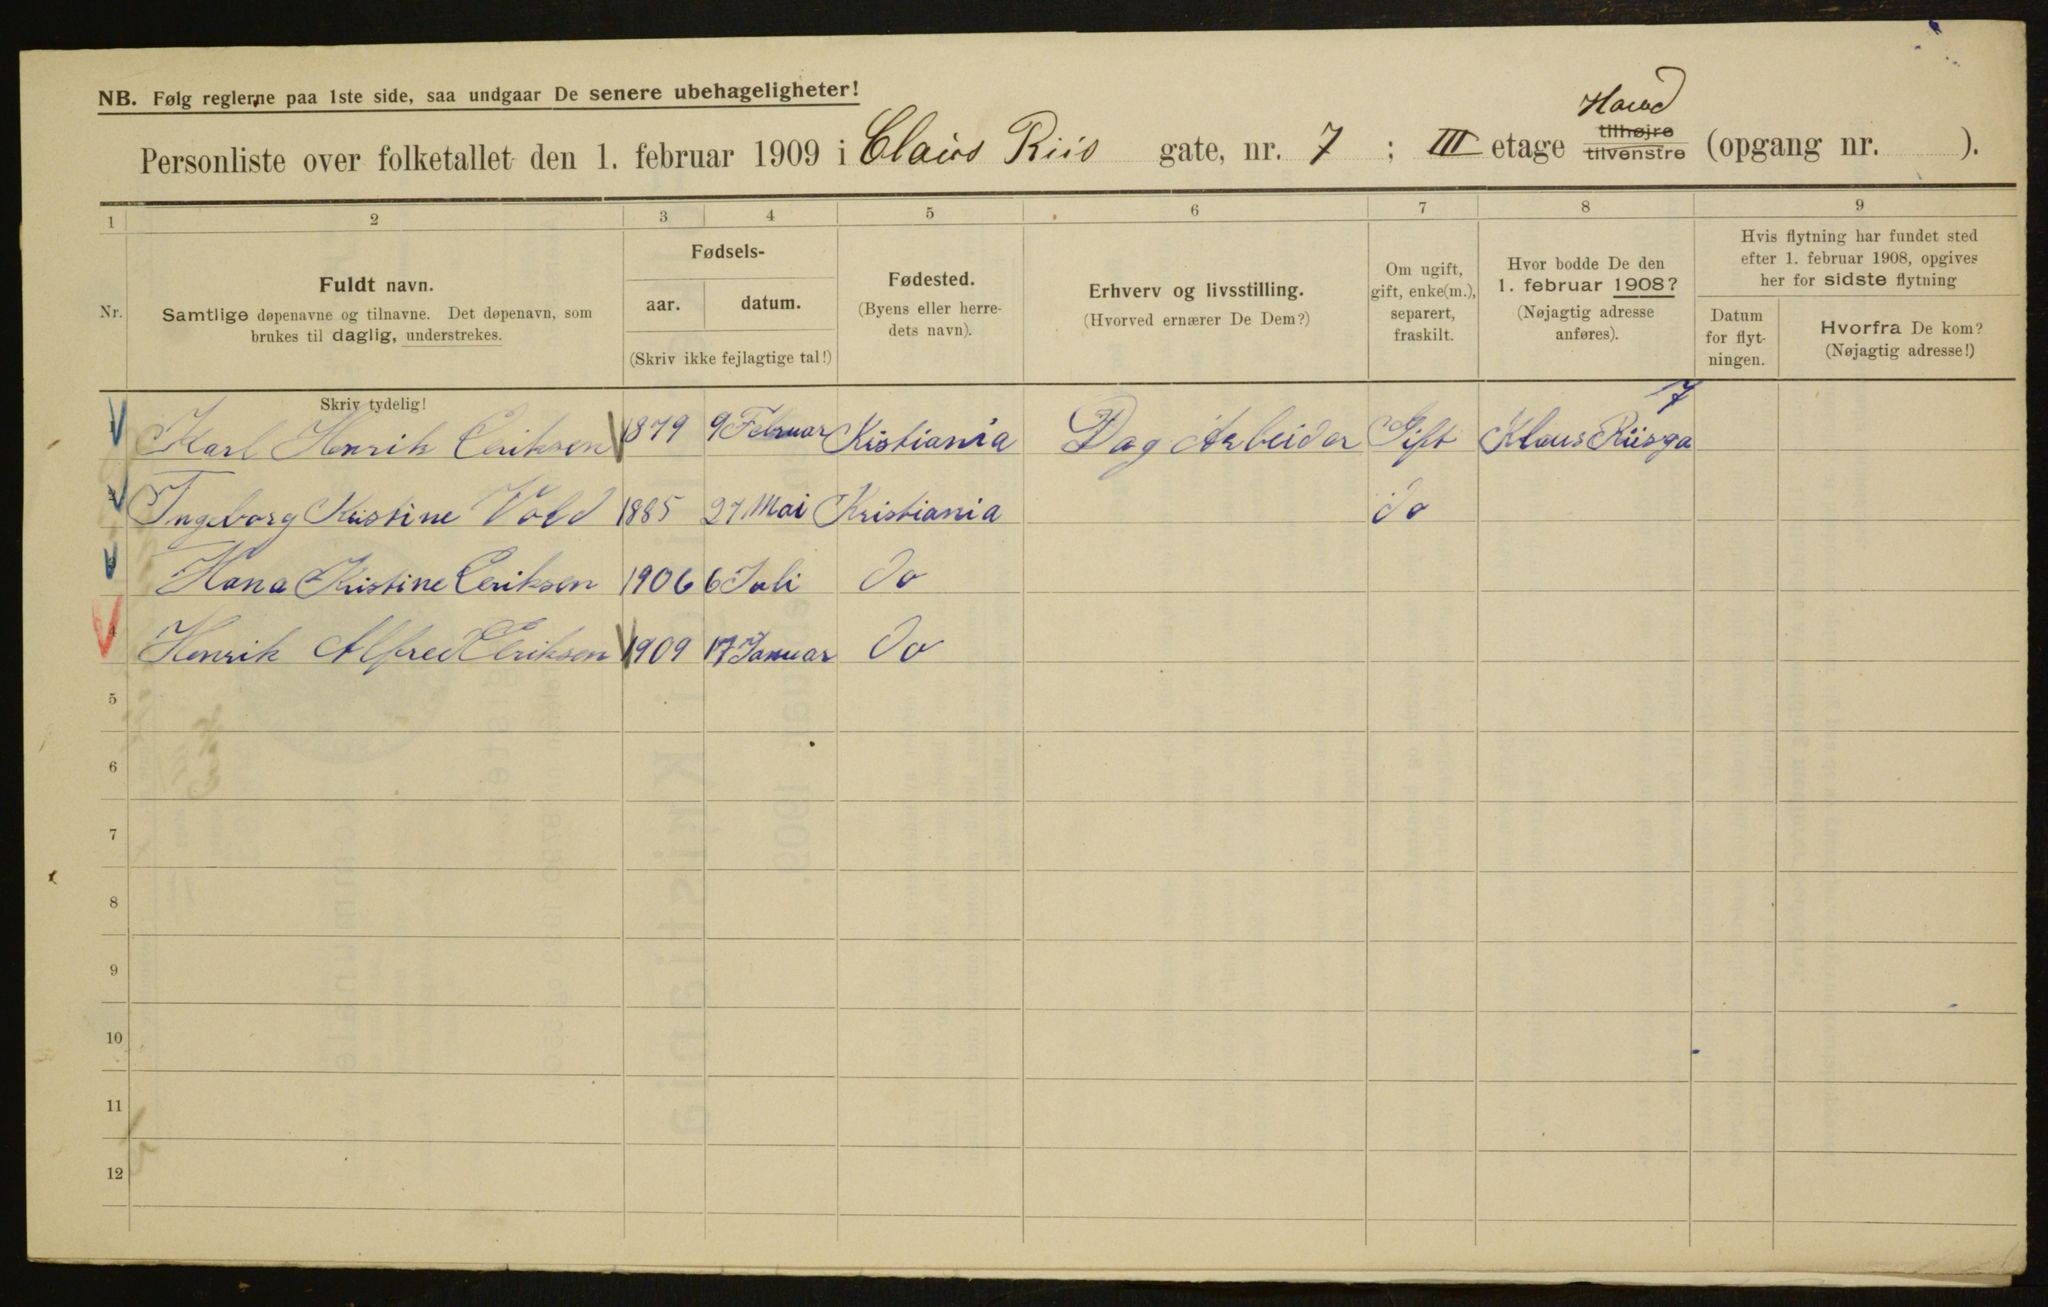 NB. Følg reglerne paa 1ste side, saa undgaar De senere ubehageligheter!
Personliste over folketallet den 1. februar 1909 i Claus Riis gate, nr. 7 ; III etage tilhøjre tilvenstre (opgang nr. ).
1 2 3 4 5 6 7 8 9
Nr.
Fuldt navn.
Samtlige døpenavne og tilnavne. Det døpenavn, som
brukes til daglig, understrekes.
Skriv tydelig!
Fødsels-
aar. datum.
(Skriv ikke fejlagtige tal!)
Fødested.
(Byens eller herre-
dets navn).
Erhverv og livsstilling.
(Hvorved ernærer De Dem?)
Om ugift,
gift, enke(m.),
separert,
fraskilt.
Hvor bodde De den
1. februar 1908?
(Nøjagtig adresse
anføres).
Hvis flytning har fundet sted
efter 1. februar 1908, opgives
her for sidste flytning
Datum
for flyt-
ningen.
Hvorfra De kom?
(Nøjagtig adresse!)
1 Karl Henrik Eeriksen 1879 9 Februar Kistiania Dag Arbeider Gift Klaus Riisga 7
2 Ingeborg Kristine Vold 1885 27 Mai Kristiania do
3 Hana Kristine Eeriksen 1906 6 Juli do
4 Henrik Alfred Eriksen 1909 17 Januar do
5
6
7
8
9
10
11
12